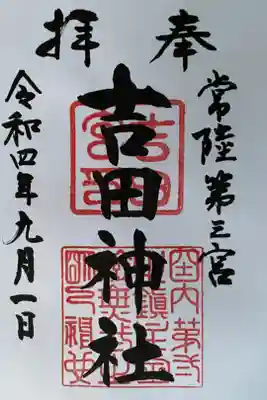 奉拝
常陸第三宮
吉田神社
令和四年九月一日